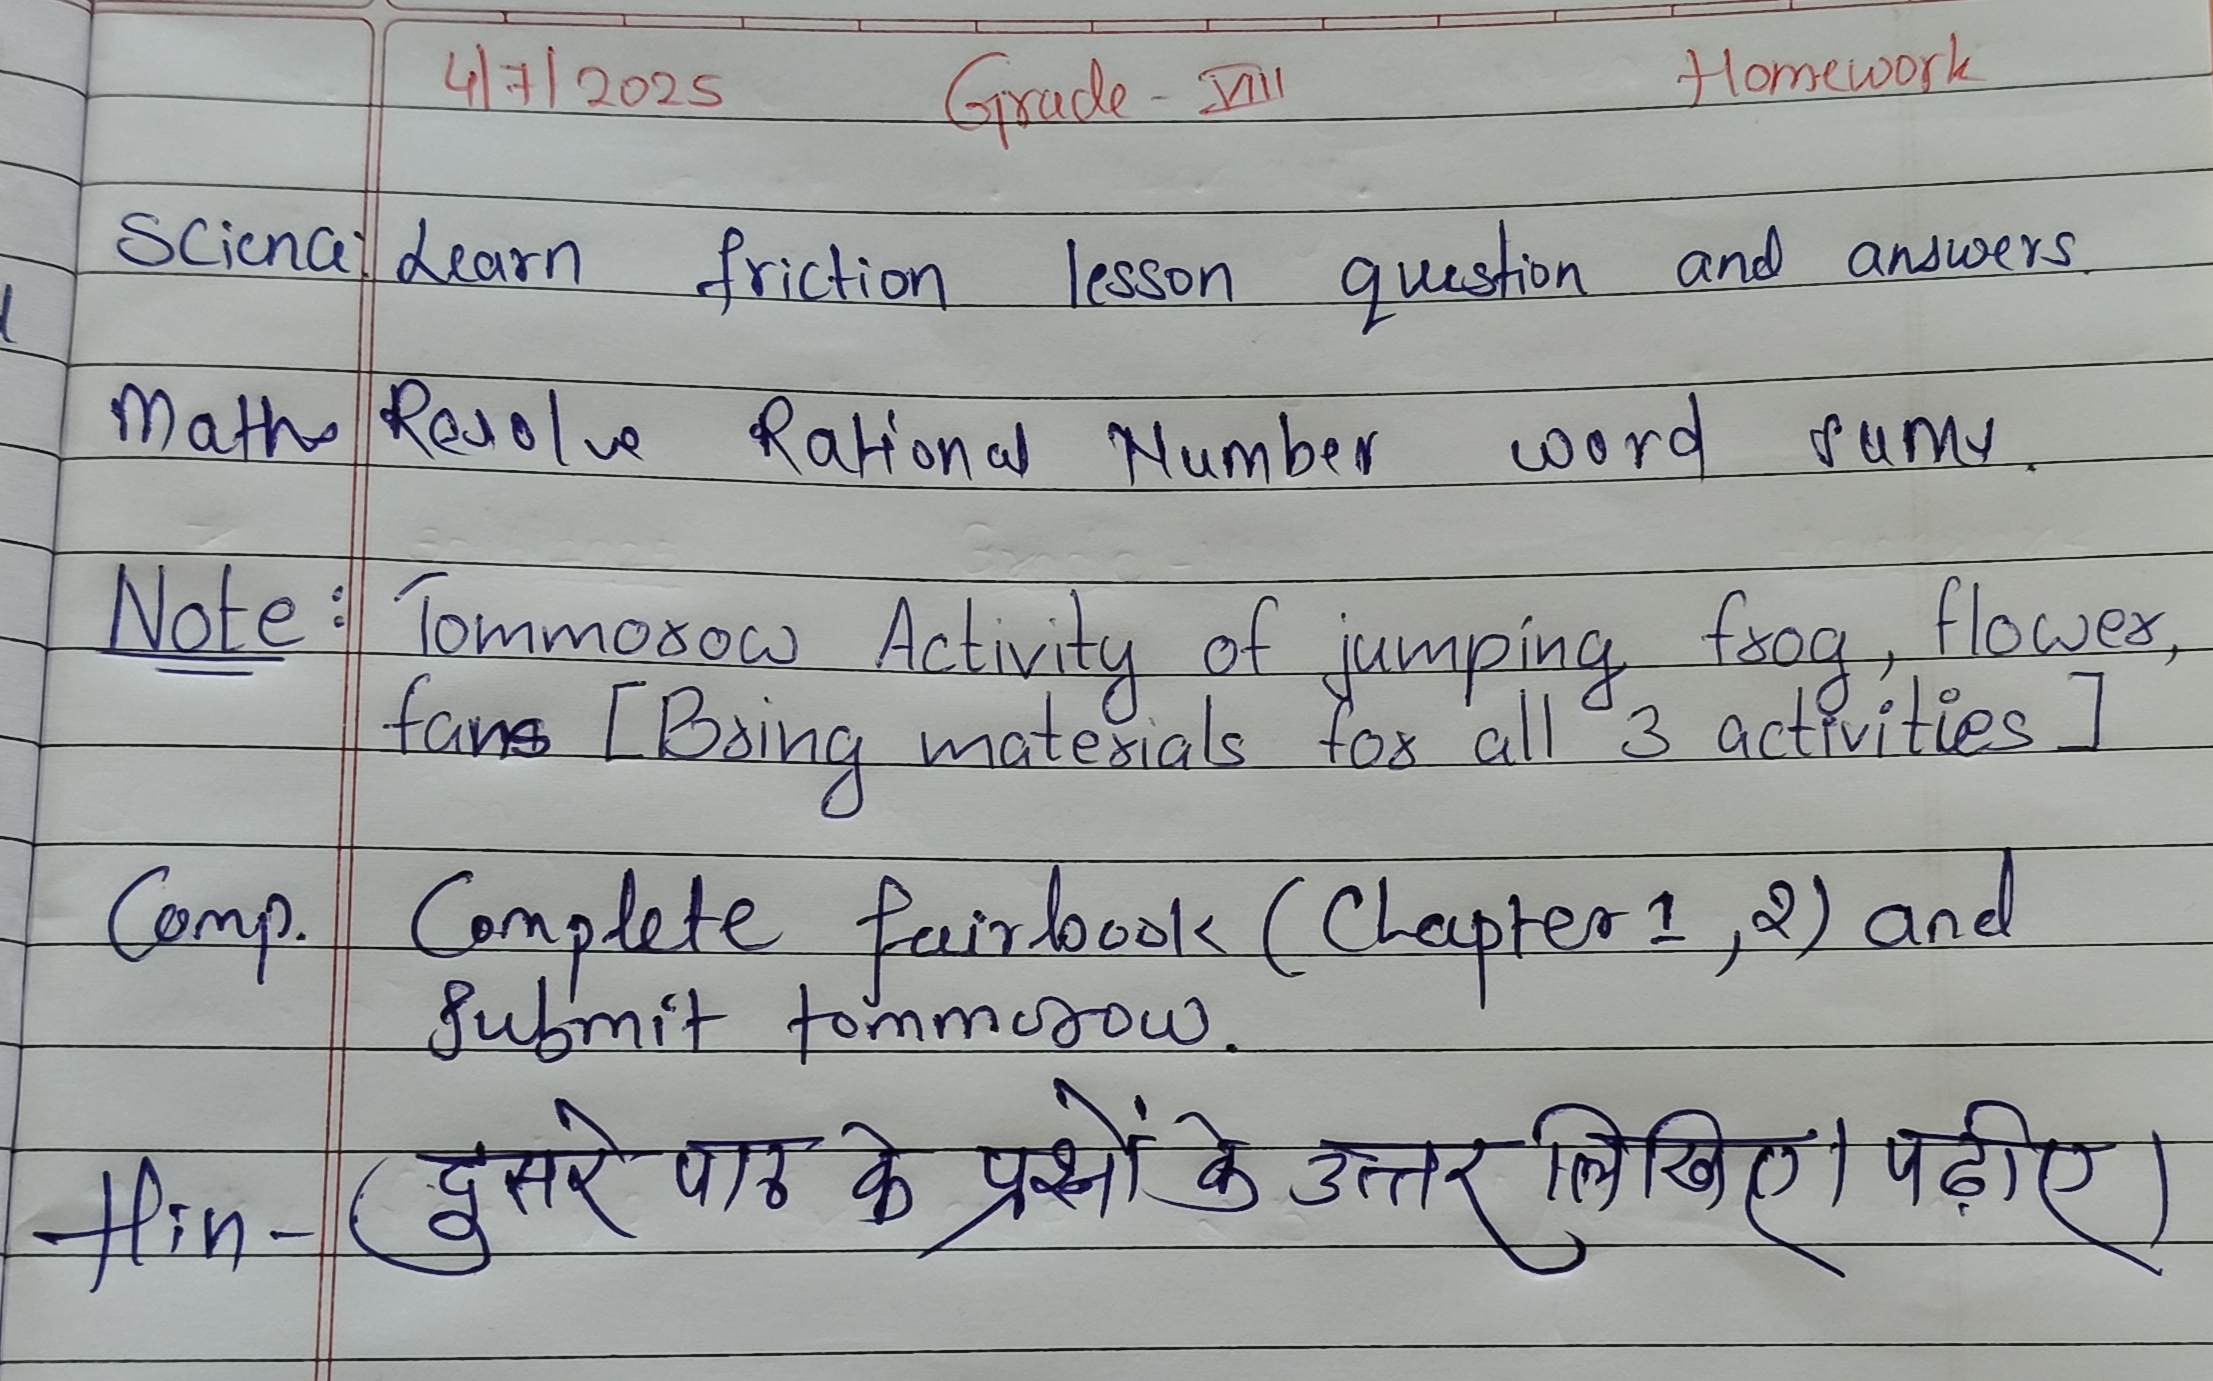 4/7/2025 Grade - VIII Homework
Science: Learn friction lesson question and answers.
Maths Resolve Rational Number word sums.
Note: Tommorow Activity of jumping frog, flower,
fans [Bring materials for all 3 activities]
Comp. Complete fairbook (Chapter 1, 2) and
submit tommorow.
Hin - (दुसरे पाठ के प्रश्नों के उत्तर लिखिए। पढ़ीए)